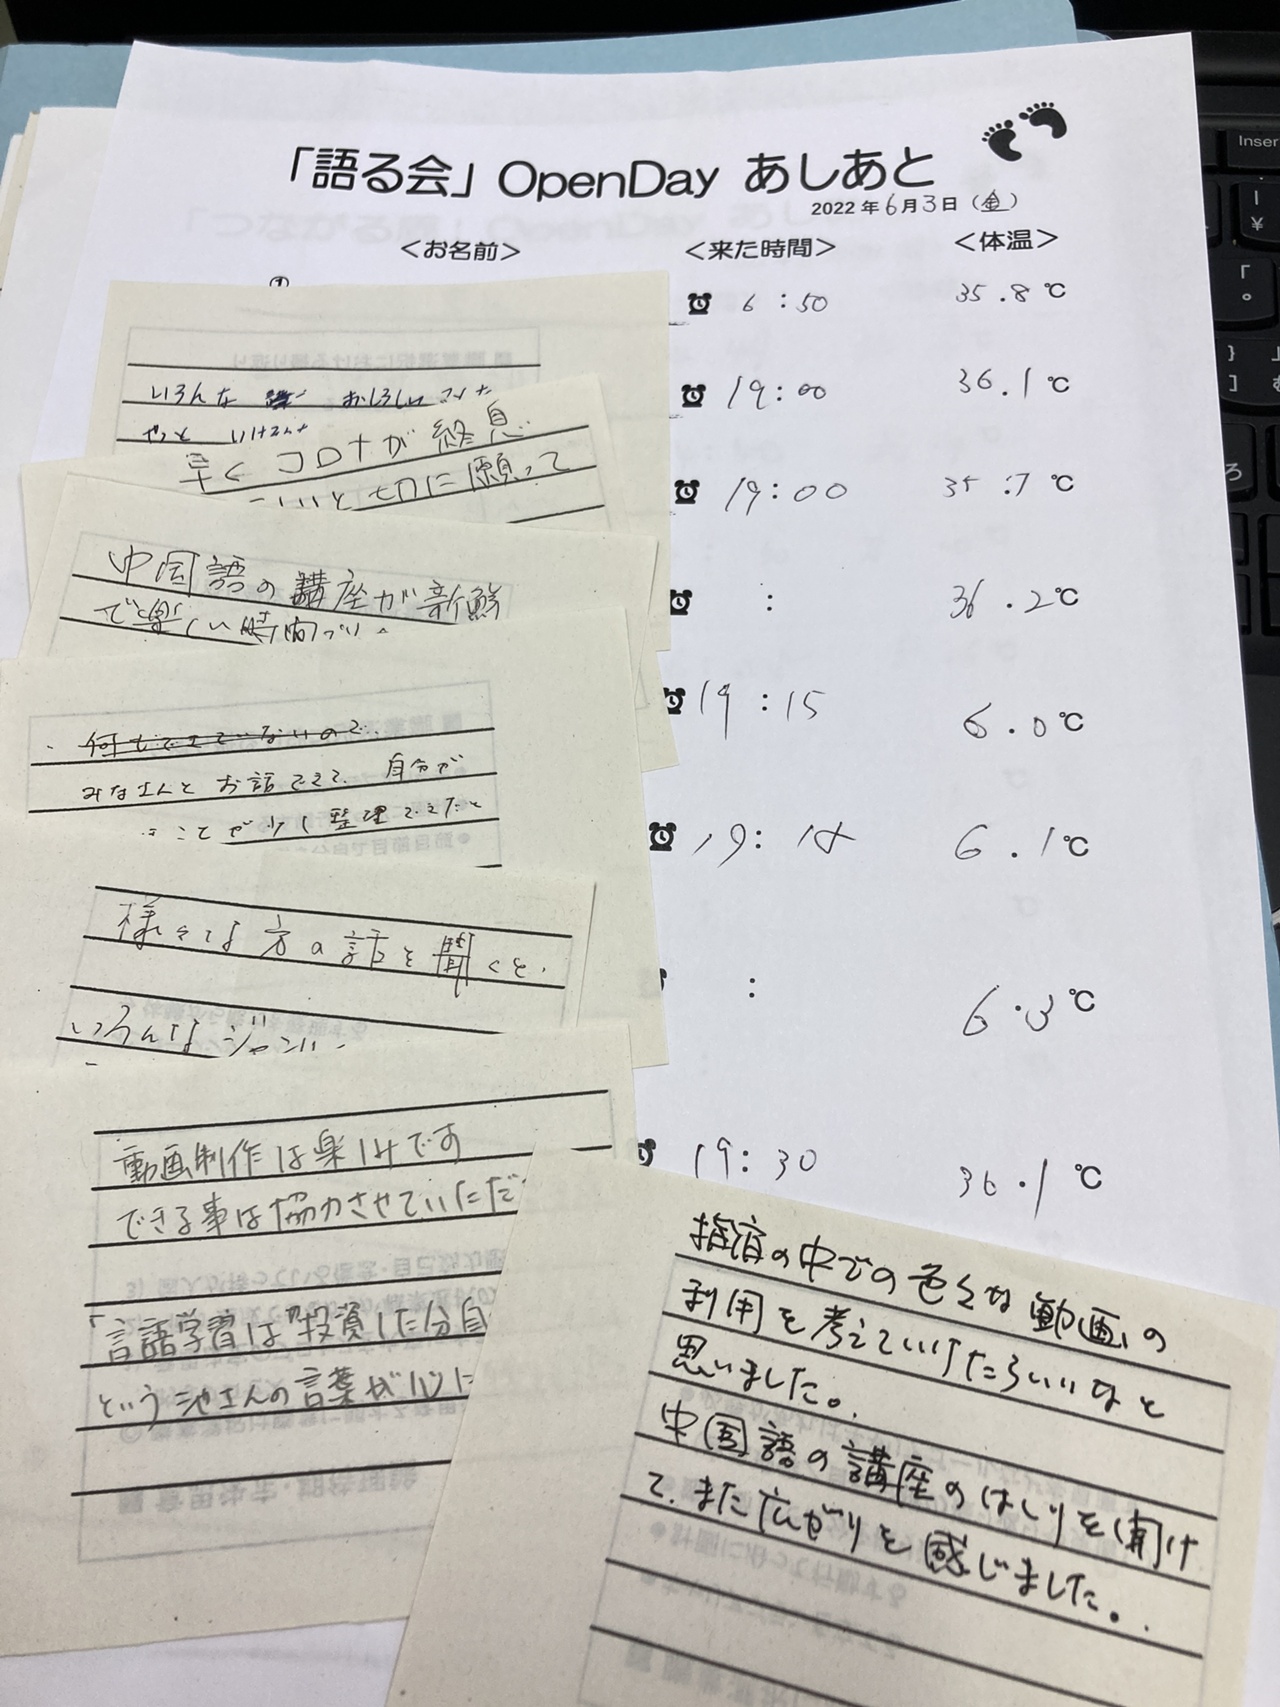 「語る会」OpenDay あしあと
2022年6月3日(金)
<お名前> <来た時間> <体温>
①
6:50 35.8℃
19:00 36.1℃
19:00 35.7℃
: 36.2℃
19:15 6.0℃
19:18 6.1℃
: 6.3℃
19:30 36.1℃
いろんな おもしろい
やっと
早くコロナが終息
いいと切に願って
中国語の講座が新鮮
で楽しい時間でし
何もできていないので
みなさんとお話できて、自分が
ことが少し整理できたと
様々な方の話を聞くと、
いろんなジャンル
動画制作は楽しみです
できる事は協力させていただ
「言語学習は"投資した分自
という池さんの言葉が心に
指宿の中での色々な動画の
利用を考えていけたらいいなと
思いました。
中国語の講座のはしりを聞け
て、また広がりを感じました。
Inser